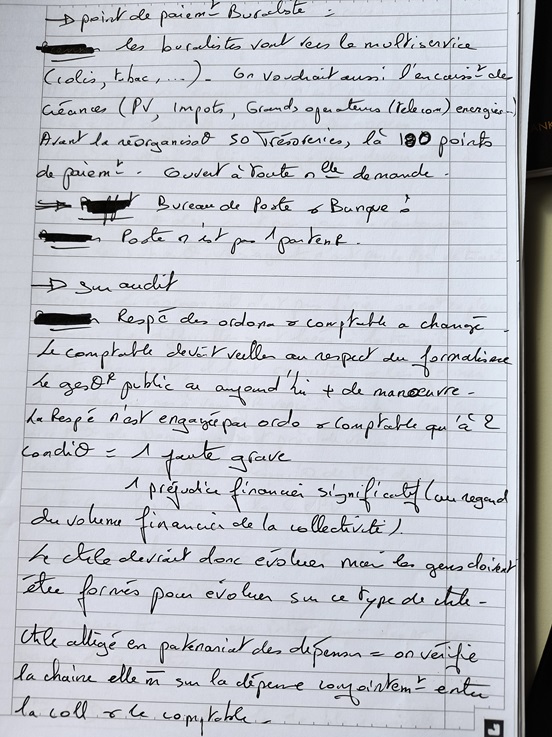 → point de paiemt Buraliste :
les buralistes vont vers le multiservice
(colis, tabac, ....) - On voudrait aussi l'encaisst de
créances (PV, Impots, Grands opérateurs (telecom) energies...)
Avant la réorganisaθ 50 Trésoreries, là 180 points
de paiemt. Ouvert à toute nlle demande.
→ Bureau de Poste & Banque ?
Poste n'est pas 1 partenr.
→ sur audit
Respé des ordona & comptable a changé.
Le comptable devait veiller au respect du formalisme
Le gesθr public a aujourd'hui + de manoeuvre.
La Respé n'est engagée par ordo & comptable qu'à 2
condiθ = 1 faute grave
1 préjudice financier significatif (au regard
du volume financier de la collectivité).
Le ctrle devrait donc évoluer mais les gens doivent
être formés pour évoluer sur ce type de ctrle -
Ctrle allégé en partenariat des dépenses = on vérifie
la chaine elle m̄ sur la dépense conjointemt entre
la coll & le comptable.